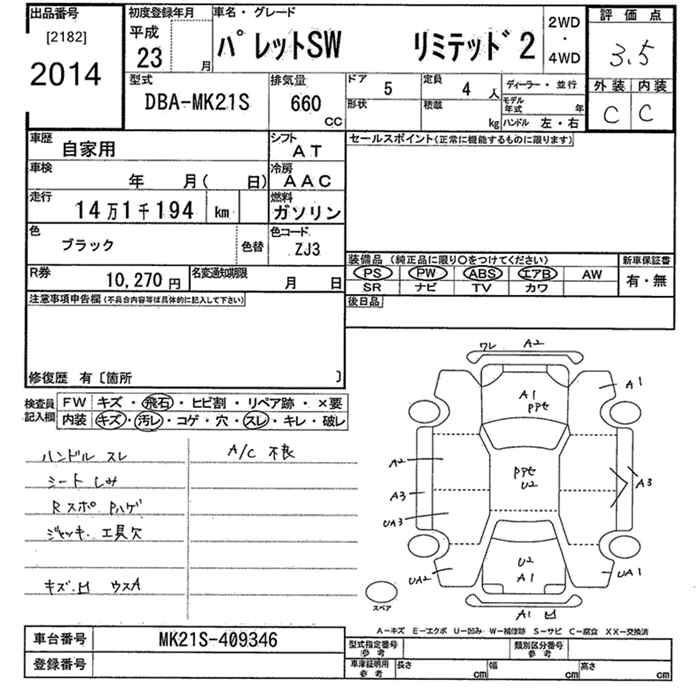 出品番号
[2182]
2014
初度登録年月
平成
23 月
車名・グレード
パレットSW リミテッド2
2WD
・
4WD
評価点
3.5
外装 内装
C C
型式
DBA-MK21S
排気量
660
CC
ドア 5
形状
定員 4 人
積載 kg
ディーラー・並行
モデル年式 年
ハンドル 左・右
車歴
自家用
シフト
AT
車検
年 月( 日)
冷房
AAC
走行
14万1千194 km
燃料
ガソリン
色
ブラック
色替
色コード
ZJ3
R券
10,270円
名変通知期限
月 日
セールスポイント(正常に機能するものに限ります)
装備品 (純正品に限り○をつけてください)
PS PW ABS エアB AW
SR ナビ TV カワ
新車保証書
有・無
後日品
注意事項申告欄(不具合内容等は具体的に記入して下さい)
修復歴 有〔箇所 〕
検査員
記入欄
FW キズ・飛石・ヒビ割・リペア跡・×要
内装 キズ・汚レ・コゲ・穴・スレ・キレ・破レ
ハンドル スレ
シート しみ
Rスポ Pハゲ
ジャッキ、工具欠
キズ、凹 ウスA
A/C 不良
ワレ A2
A1
A1
PPセ
A2
PPセ
U2
A3
A3
UA3
U2
A1
UA2
UA1
A1 凹
スペア
A-キズ E-エクボ U-凹み W-補修跡 S-サビ C-腐食 XX-交換済
車台番号
MK21S-409346
登録番号
型式指定番号
参考
類別区分番号
参考
車庫証明用
参考
長さ cm
幅 cm
高さ cm